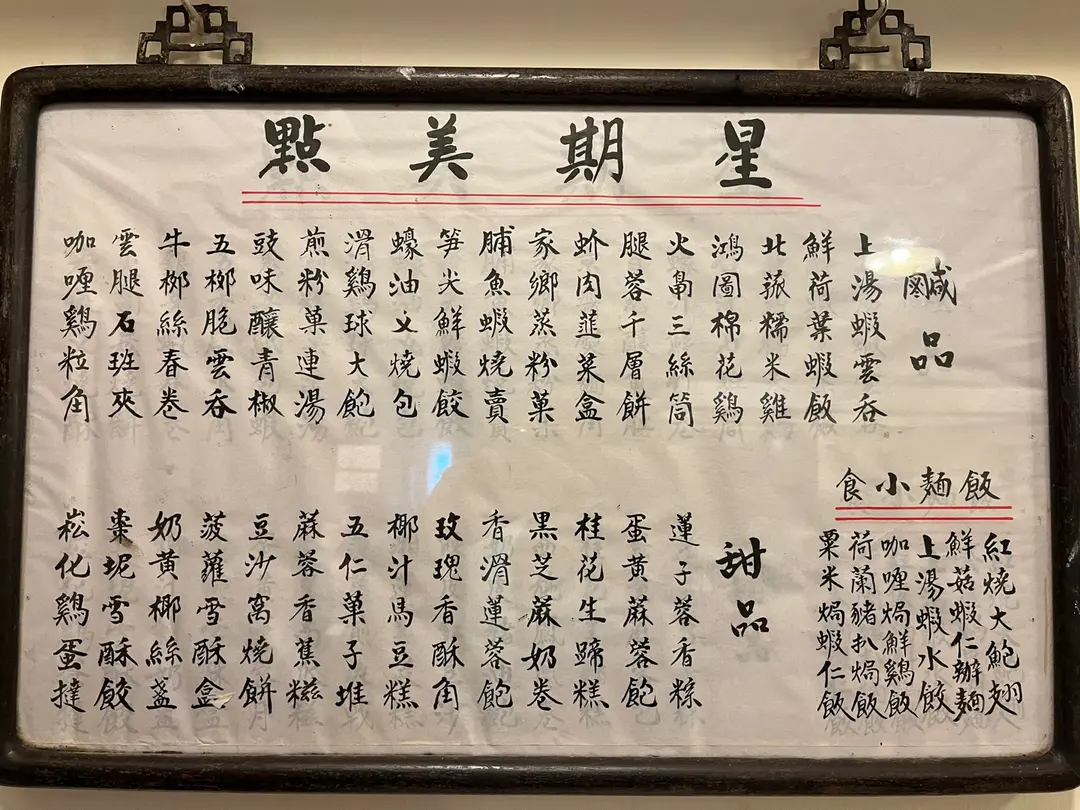 星期美點
鹹品
上湯蝦雲吞
鮮荷葉蝦飯
北菰糯米雞
鴻圖棉花鷄
火畠三絲筒
腿蓉千層餅
蚧肉韮菜盒
家鄉蒸粉菓
脯魚蝦燒賣
笋尖鮮蝦餃
蠔油义燒包
滑鷄球大飽
煎粉菓連湯
豉味釀青椒
五榔脆雲吞
牛榔絲春卷
雲腿石班夾
咖喱鷄粒角
飯麵小食
紅燒大鮑翅
鮮菇蝦仁辦麵
上湯蝦水餃
咖喱焗鮮鷄飯
荷蘭豬扒焗飯
粟米焗蝦仁飯
甜品
蓮子蓉香粽
蛋黃蔴蓉飽
桂花生蹄糕
黑芝蔴奶卷
香滑蓮蓉飽
玫瑰香酥角
椰汁馬豆糕
五仁菓子堆
蔴蓉香蕉糍
豆沙窩燒餅
菠蘿雪酥盒
奶黃椰絲盞
棗坭雪酥餃
崧化鷄蛋撻